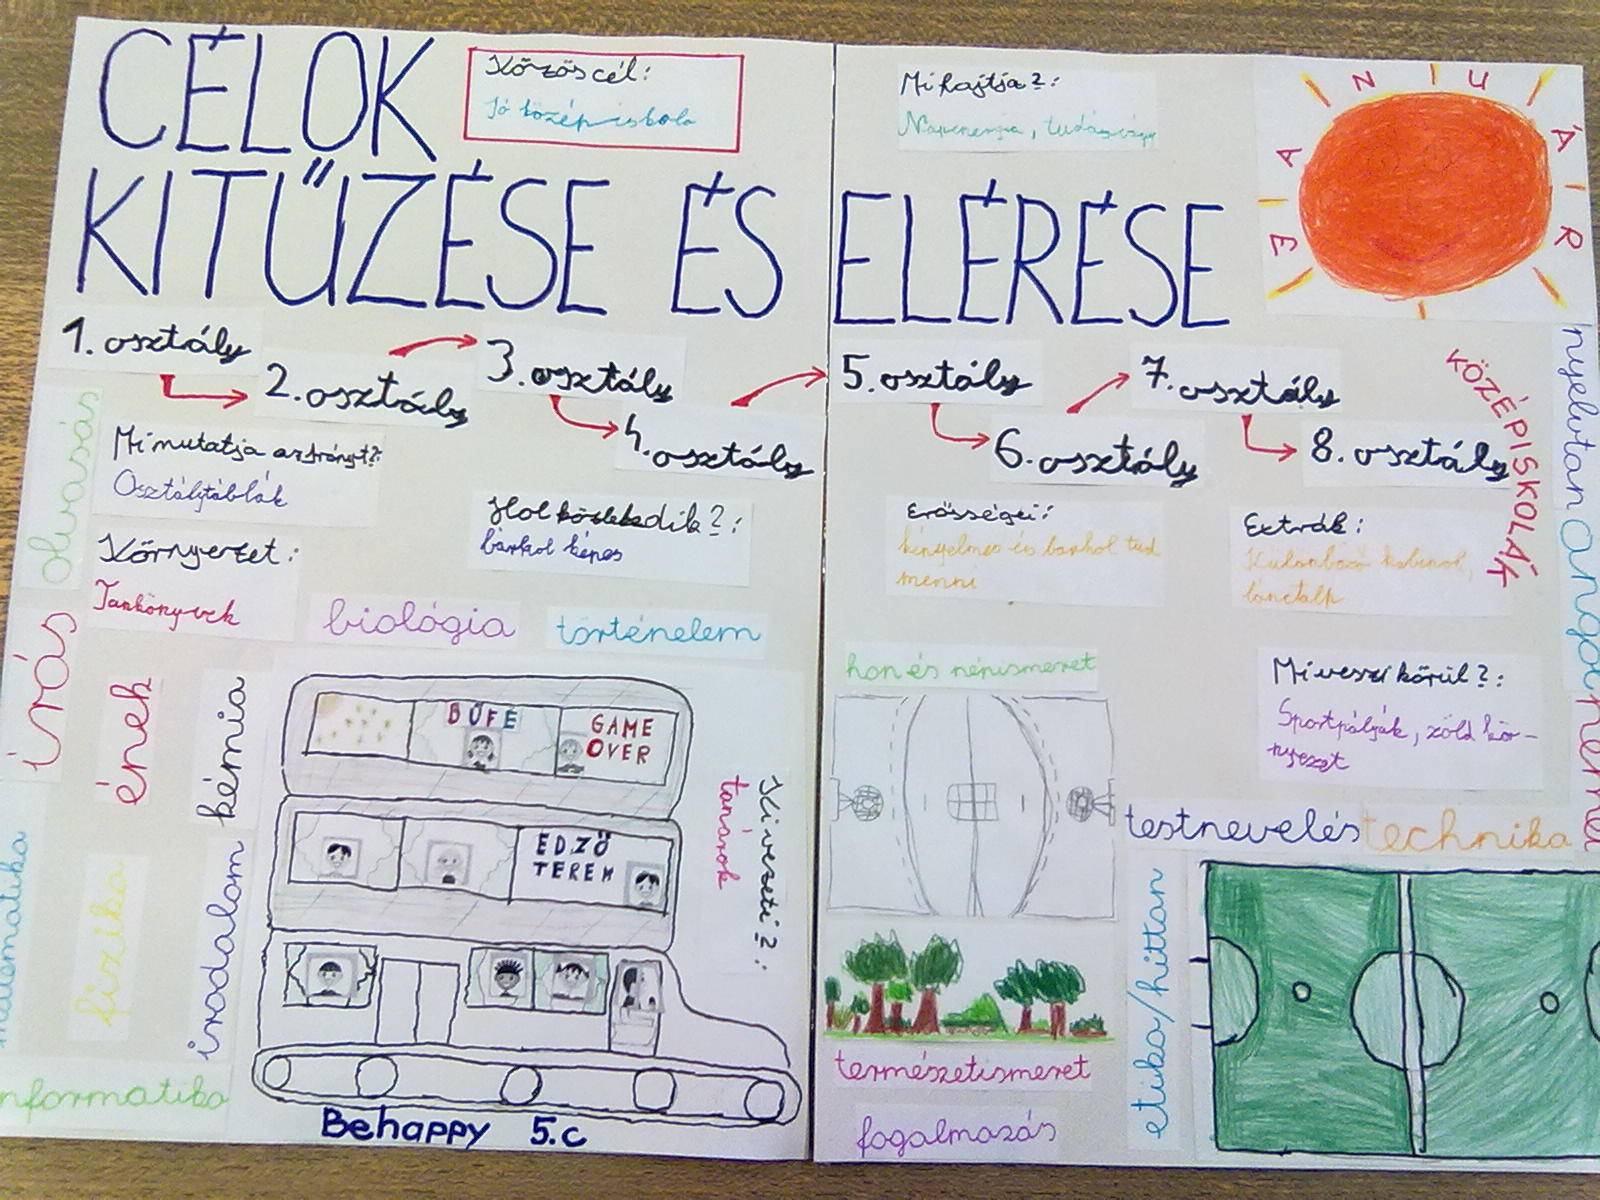 CÉLOK
KITŰZÉSE ÉS ELÉRÉSE
Közös cél:
Jó középiskola
Mi hajtja?:
Napenergia, tudásvágy
JANUÁR
1. osztály
2. osztály
3. osztály
4. osztály
5. osztály
6. osztály
7. osztály
8. osztály
KÖZÉPISKOLÁK
Mi mutatja az irányt?:
Osztálytáblák
Környezet:
Tankönyvek
Hol közlekedik?:
bárhol képes
Erősségei:
kényelmes és bárhol tud
menni
Extrák:
Különböző kabinok,
lánctalp
Mi veszi körül?:
Sportpályák, zöld kör-
nyezet
Ki vezeti?:
tanárok
olvasás
írás
ének
kémia
biológia
történelem
matematika
fizika
irodalom
informatika
hon és népismeret
testnevelés
technika
nyelvtan
angol
német
etika/hittan
természetismeret
fogalmazás
BÜFÉ
GAME
OVER
EDZŐ
TEREM
Behappy 5.c